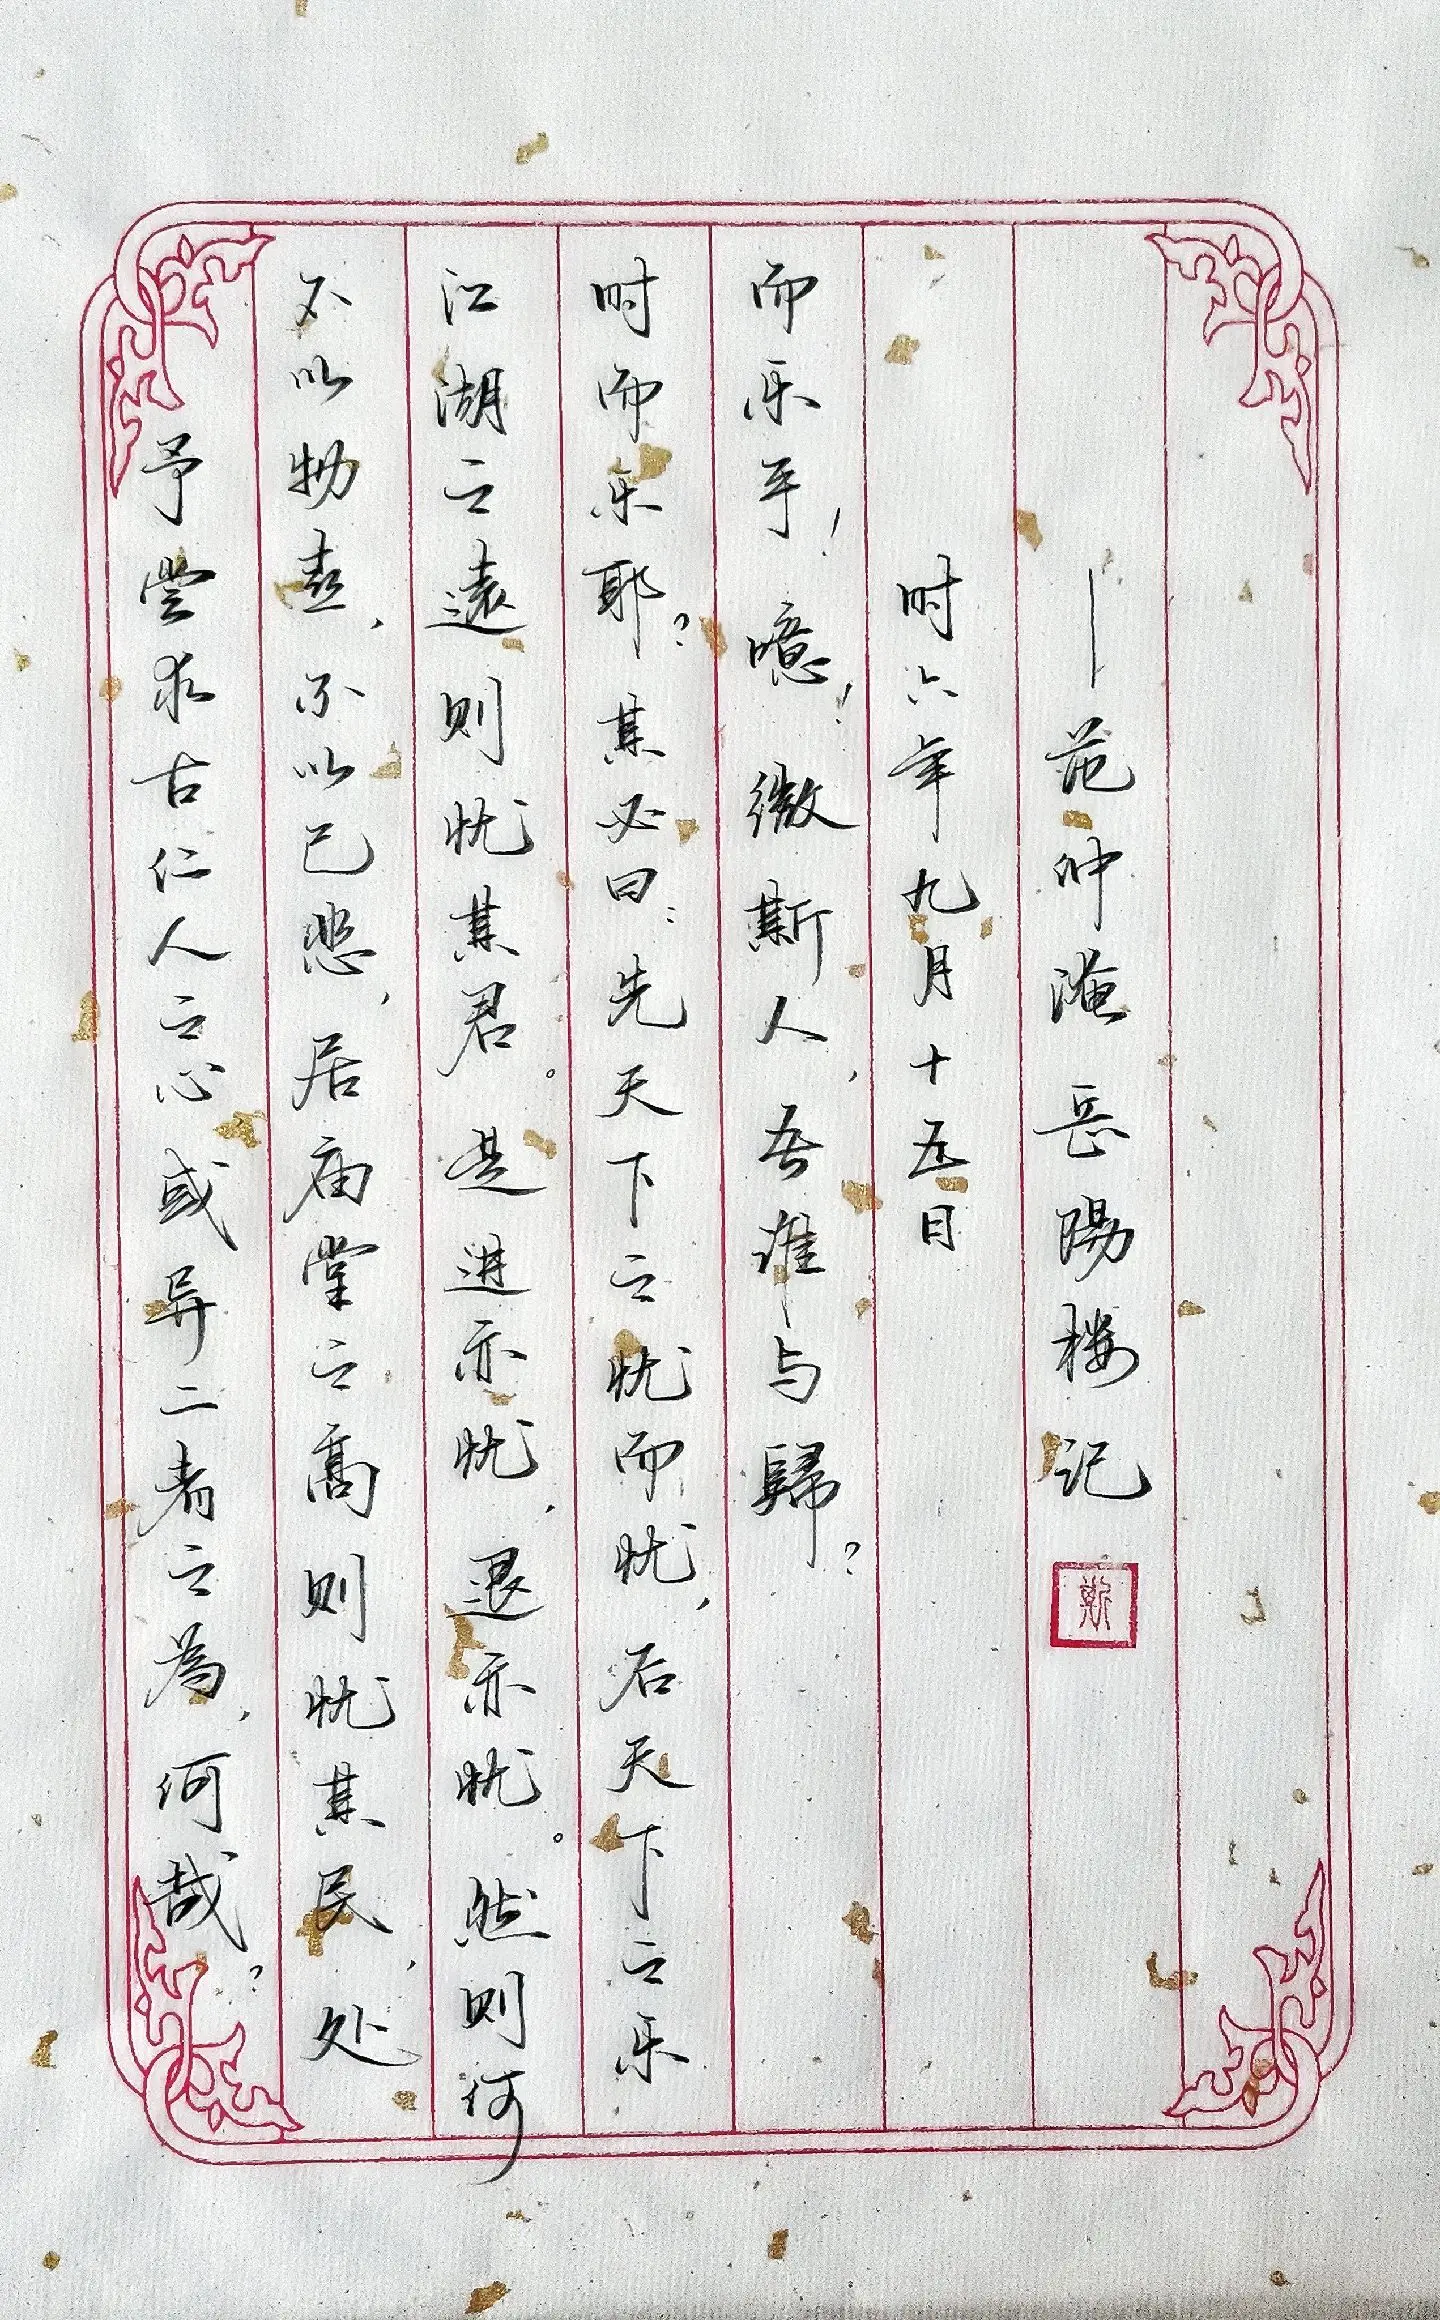 予尝求古仁人之心或异二者之为，何哉？
不以物喜，不以己悲，居庙堂之高则忧其民，处
江湖之遠则忧其君。是进亦忧，退亦忧。然则何
时而乐耶？其必曰：先天下之忧而忧，后天下之乐
而乐乎！噫！微斯人，吾谁与歸？
时六年九月十五日
—范仲淹 岳陽楼记
斯